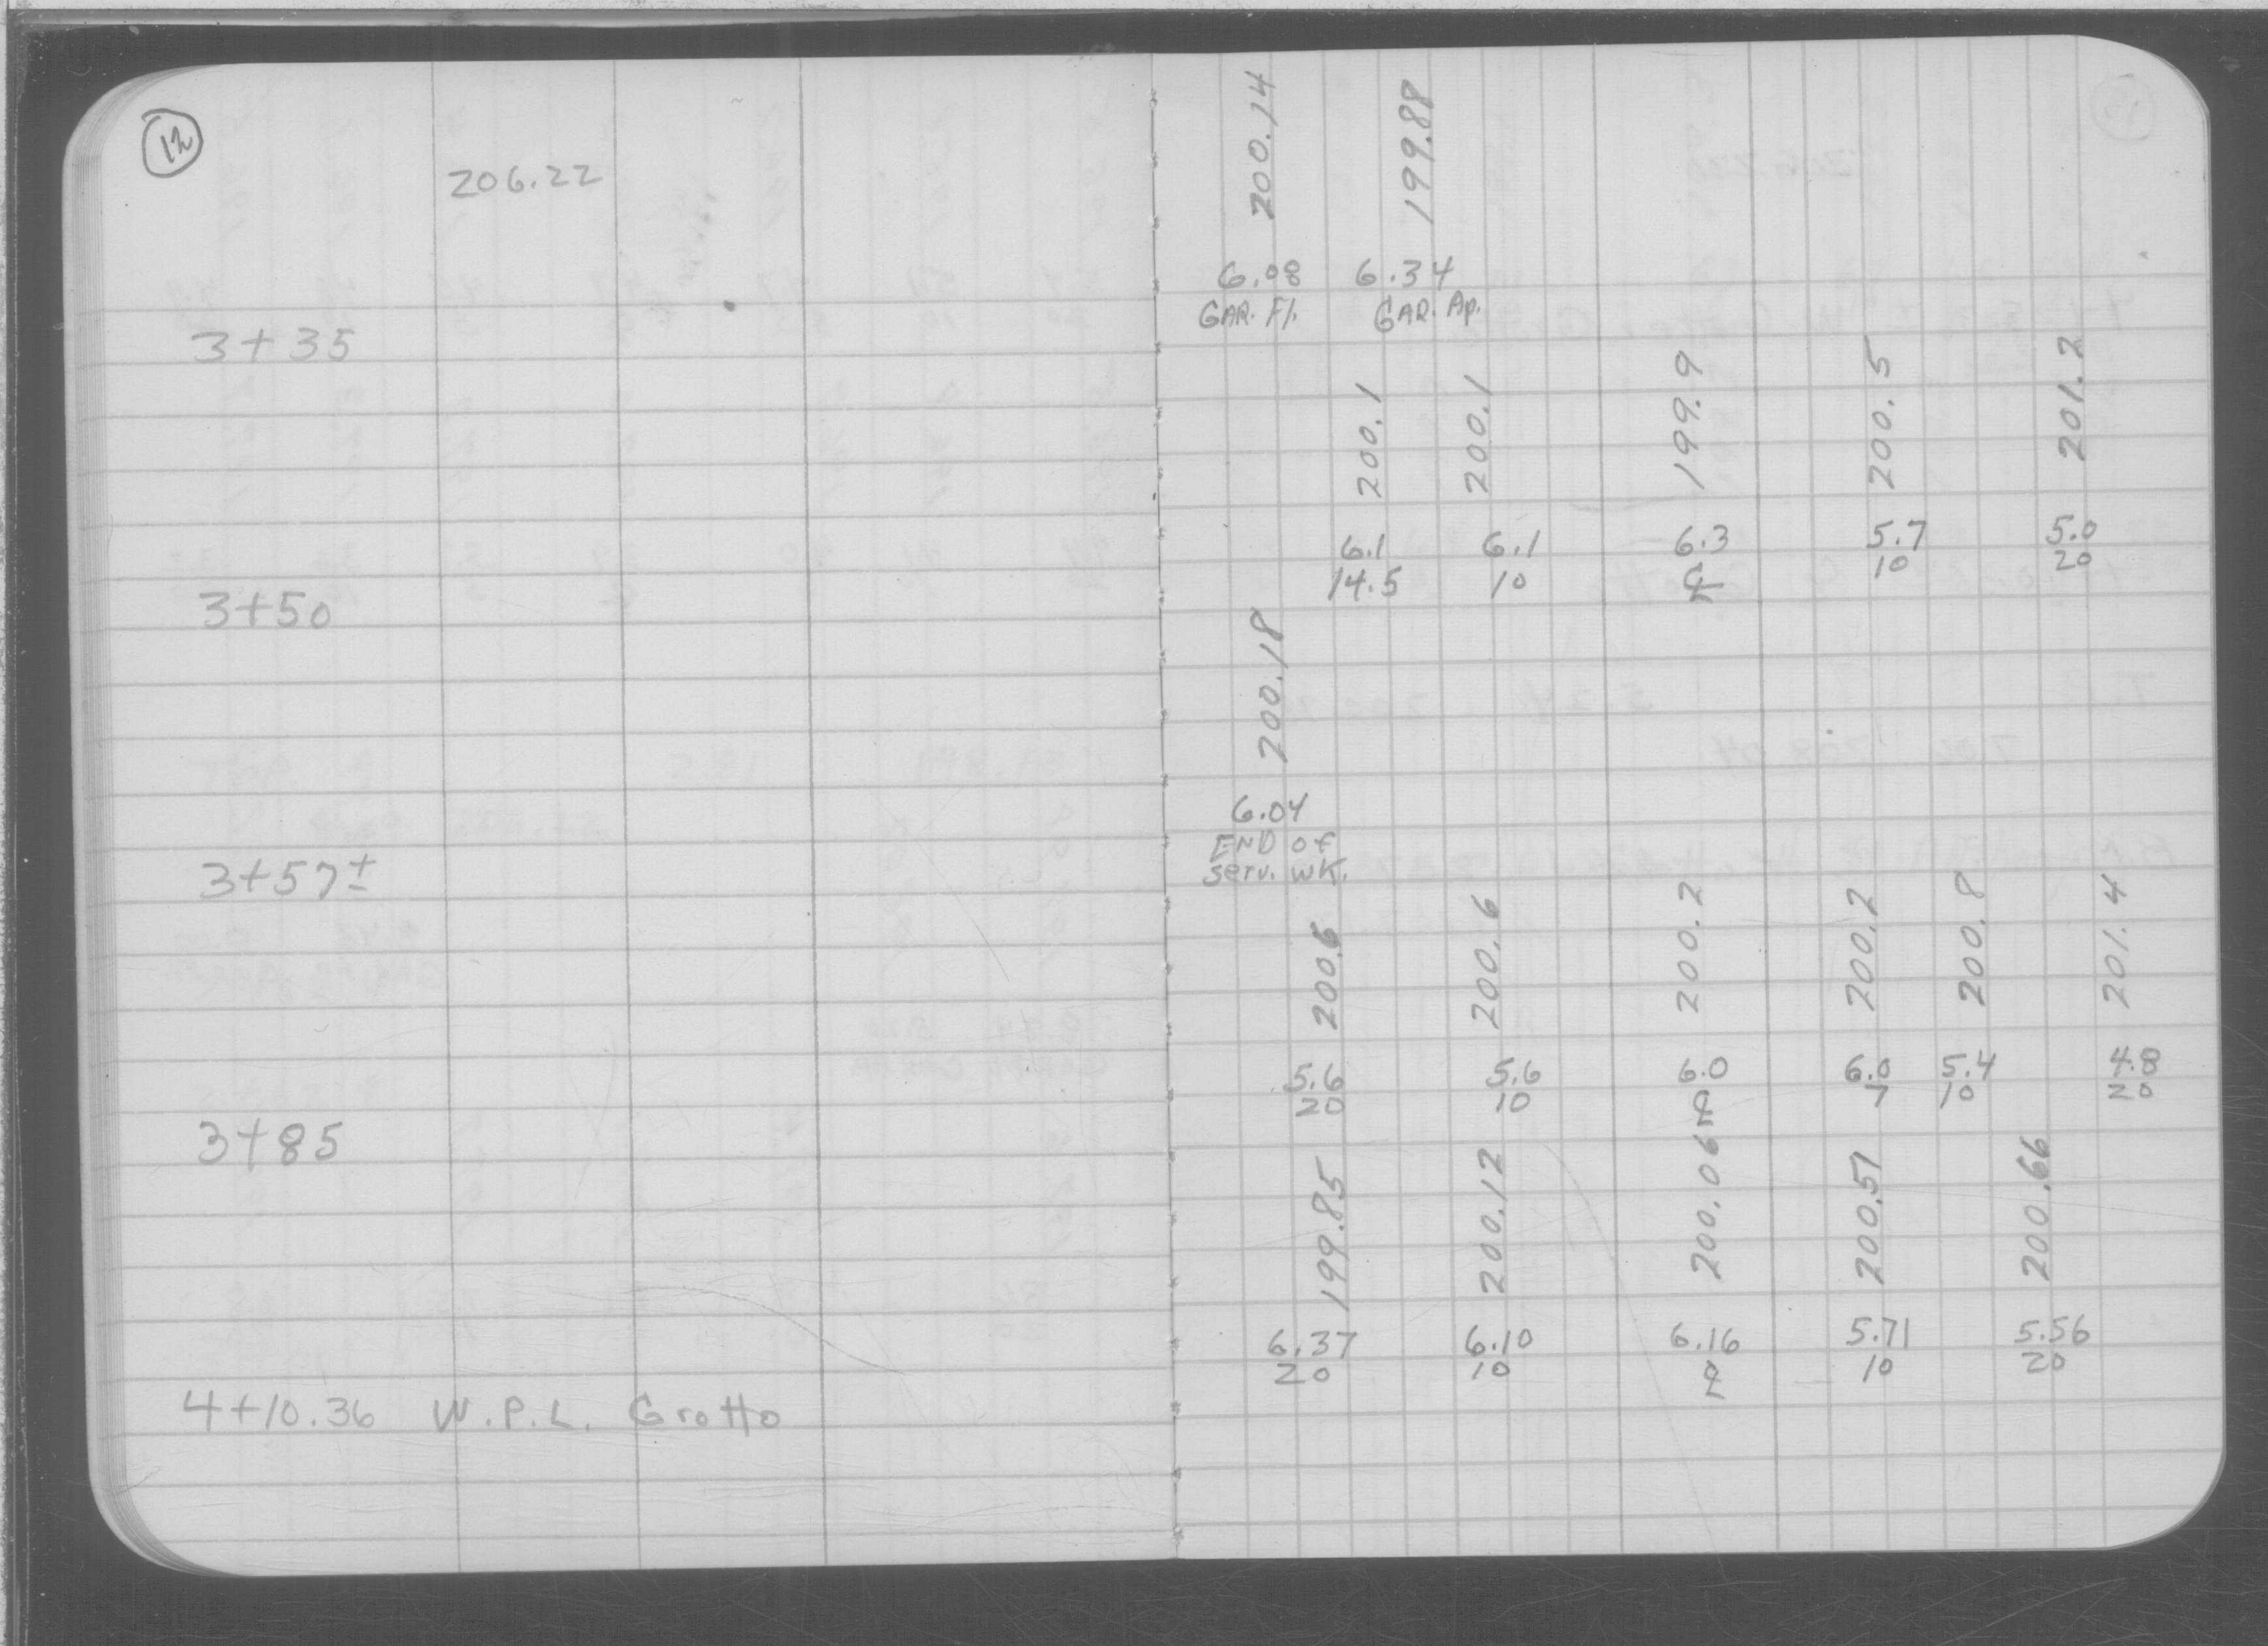 12
206.22
200.14 199.88
6.08 6.34
GAR. Fl. GAR. Ap.
3+35
200.1 200.1 199.9 200.5 201.2
6.1 6.1 6.3 5.7 5.0
14.5 10 ℄ 10 20
3+50
200.18
6.04
END of
serv. WK.
3+57±
200.6 200.6 200.2 200.2 200.8 201.4
5.6 5.6 6.0 6.0 5.4 4.8
20 10 ℄ 7 10 20
3+85
199.85 200.12 200.06 200.51 200.66
6.37 6.10 6.16 5.71 5.56
20 10 ℄ 10 20
4+10.36 W.P.L. Grotto